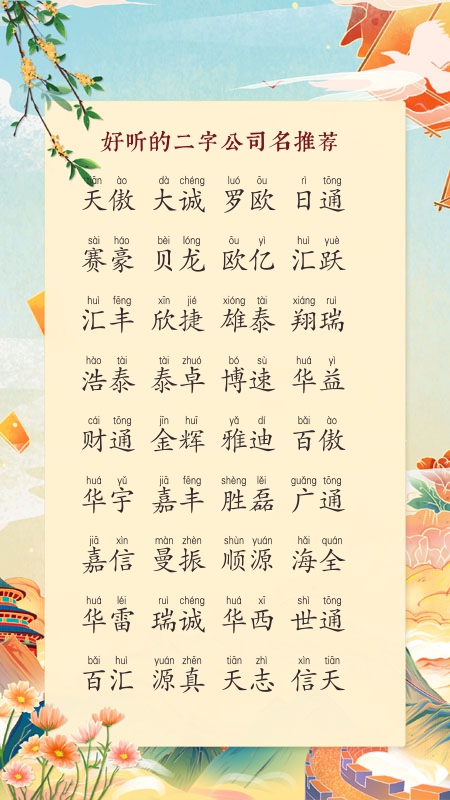 好听的二字公司名推荐
tiān ào dà chéng luó ōu rì tōng
天傲 大诚 罗欧 日通
sài háo bèi lóng ōu yì huì yuè
赛豪 贝龙 欧亿 汇跃
huì fēng xīn jié xióng tài xiáng ruì
汇丰 欣捷 雄泰 翔瑞
hào tài tài zhuó bó sù huá yì
浩泰 泰卓 博速 华益
cái tōng jīn huī yǎ dí bǎi ào
财通 金辉 雅迪 百傲
huá yǔ jiā fēng shèng lěi guǎng tōng
华宇 嘉丰 胜磊 广通
jiā xìn màn zhèn shùn yuán hǎi quán
嘉信 曼振 顺源 海全
huá léi ruì chéng huá xī shì tōng
华雷 瑞诚 华西 世通
bǎi huì yuán zhēn tiān zhì xìn tiān
百汇 源真 天志 信天